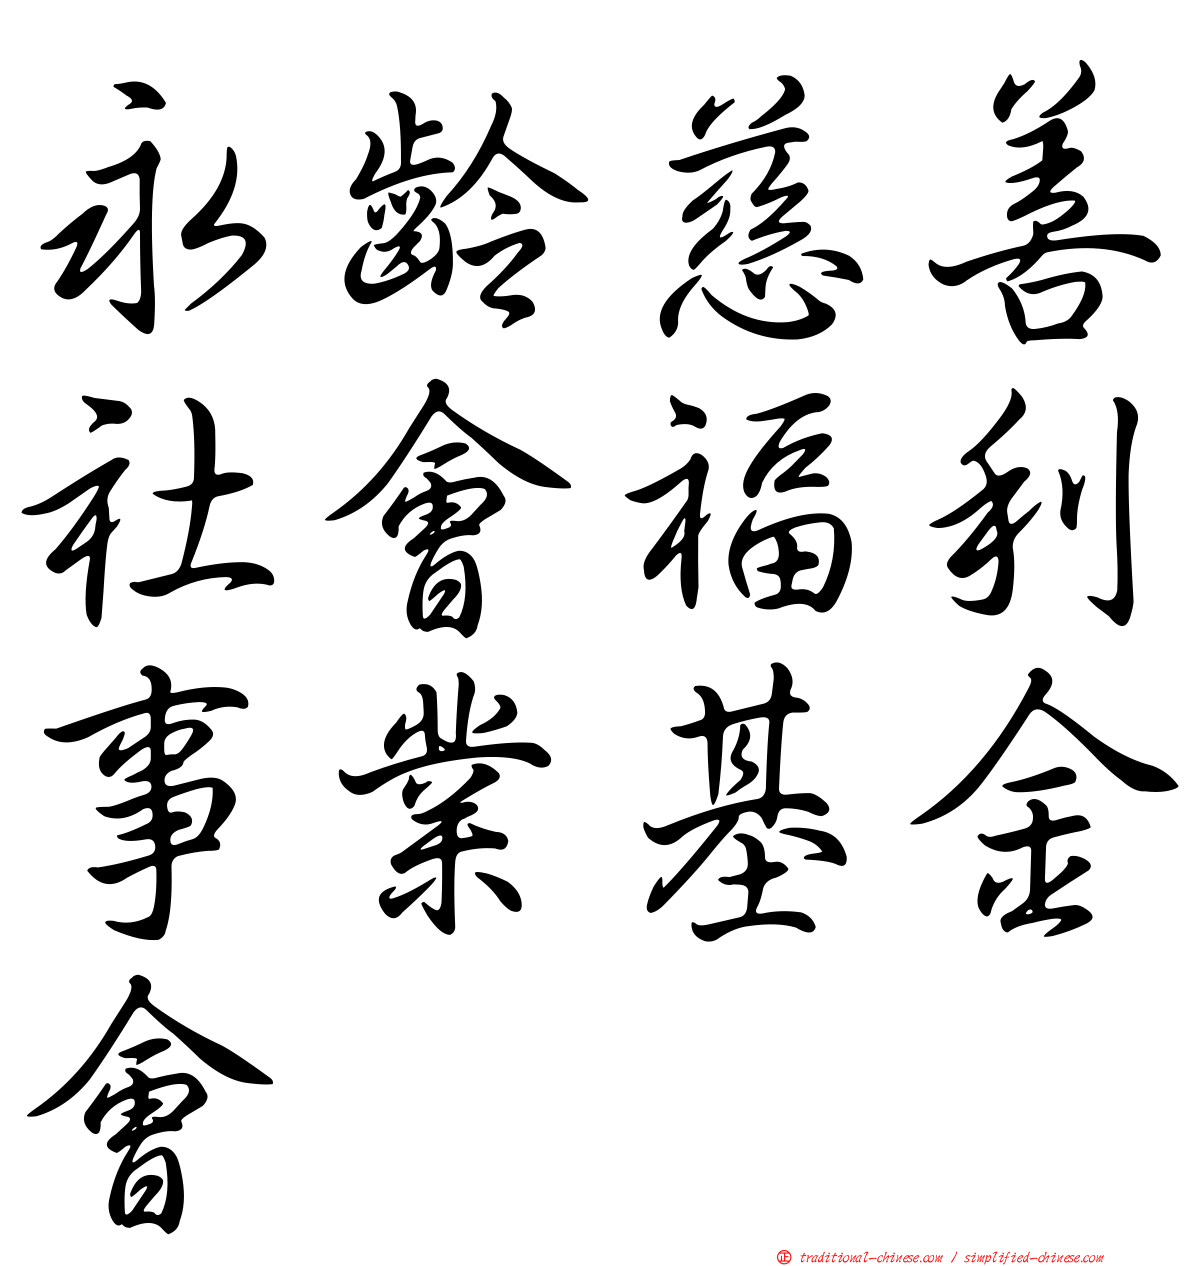 永齡慈善
社會福利
事業基金
會
正 traditional-chinese.com / simplified-chinese.com